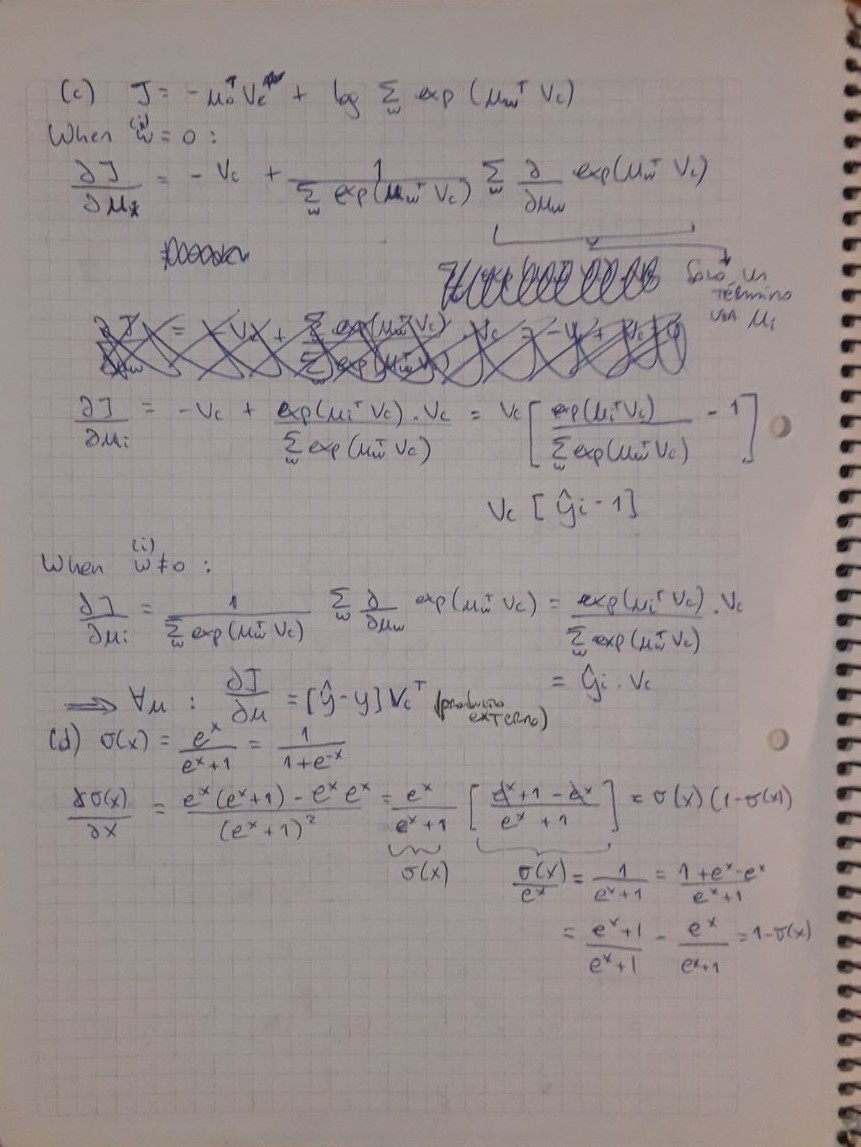 (c) J = -μ₀ᵀVc + log Σ_w exp (μ_wᵀ Vc)
When w⁽ⁱ⁾ = 0 :
∂J/∂μᵢ = - Vc + 1/(Σ_w exp(μ_wᵀ Vc)) Σ_w ∂/∂μ_w exp(μ_wᵀ Vc)
Solo un
término
μᵢ
∂J/∂μᵢ = -Vc + exp(μᵢᵀ Vc) . Vc / Σ_w exp(μ_wᵀ Vc) = Vc [ exp(μᵢᵀ Vc) / Σ_w exp(μ_wᵀ Vc) - 1 ]
Vc [ ŷᵢ - 1 ]
When w⁽ⁱ⁾ ≠ 0 :
∂J/∂μᵢ = 1/(Σ_w exp(μ_wᵀ Vc)) Σ_w ∂/∂μ_w exp(μ_wᵀ Vc) = exp(μᵢᵀ Vc) . Vc / Σ_w exp(μ_wᵀ Vc)
= ŷᵢ . Vc
⟹ ∀μ : ∂J/∂μ = [ŷ - y] Vcᵀ (producto externo)
(d) σ(x) = eˣ/(eˣ+1) = 1/(1+e⁻ˣ)
∂σ(x)/∂x = (eˣ(eˣ+1) - eˣ eˣ)/(eˣ+1)² = eˣ/(eˣ+1) [ (eˣ+1-eˣ)/(eˣ+1) ] = σ(x) (1-σ(x))
σ(x) σ(x)/eˣ = 1/(eˣ+1) = (1+eˣ-eˣ)/(eˣ+1)
= (eˣ+1)/(eˣ+1) - eˣ/(eˣ+1) = 1-σ(x)